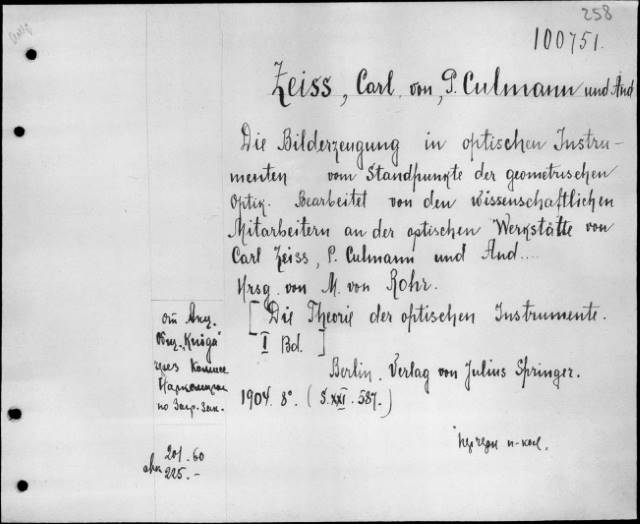 258
100751.
Zeiss, Carl von, P. Culmann und And
Die Bilderzeugung in optischen Instru-
menten vom Standpunkte der geometrischen
Optik. Bearbeitet von den wissenschaftlichen
Mitarbeitern an der optischen Werkstätte von
Carl Zeiss, P. Culmann und And....
Hrsg. von M. von Rohr.
[Die Theorie der optischen Instrumente.
I Bd.]
Berlin. Verlag von Julius Springer.
1904. 8°. (S. XXI. 587.)
от Акц.
Общ. „Книга"
через
по Загр. Зак.
201.60
225.-